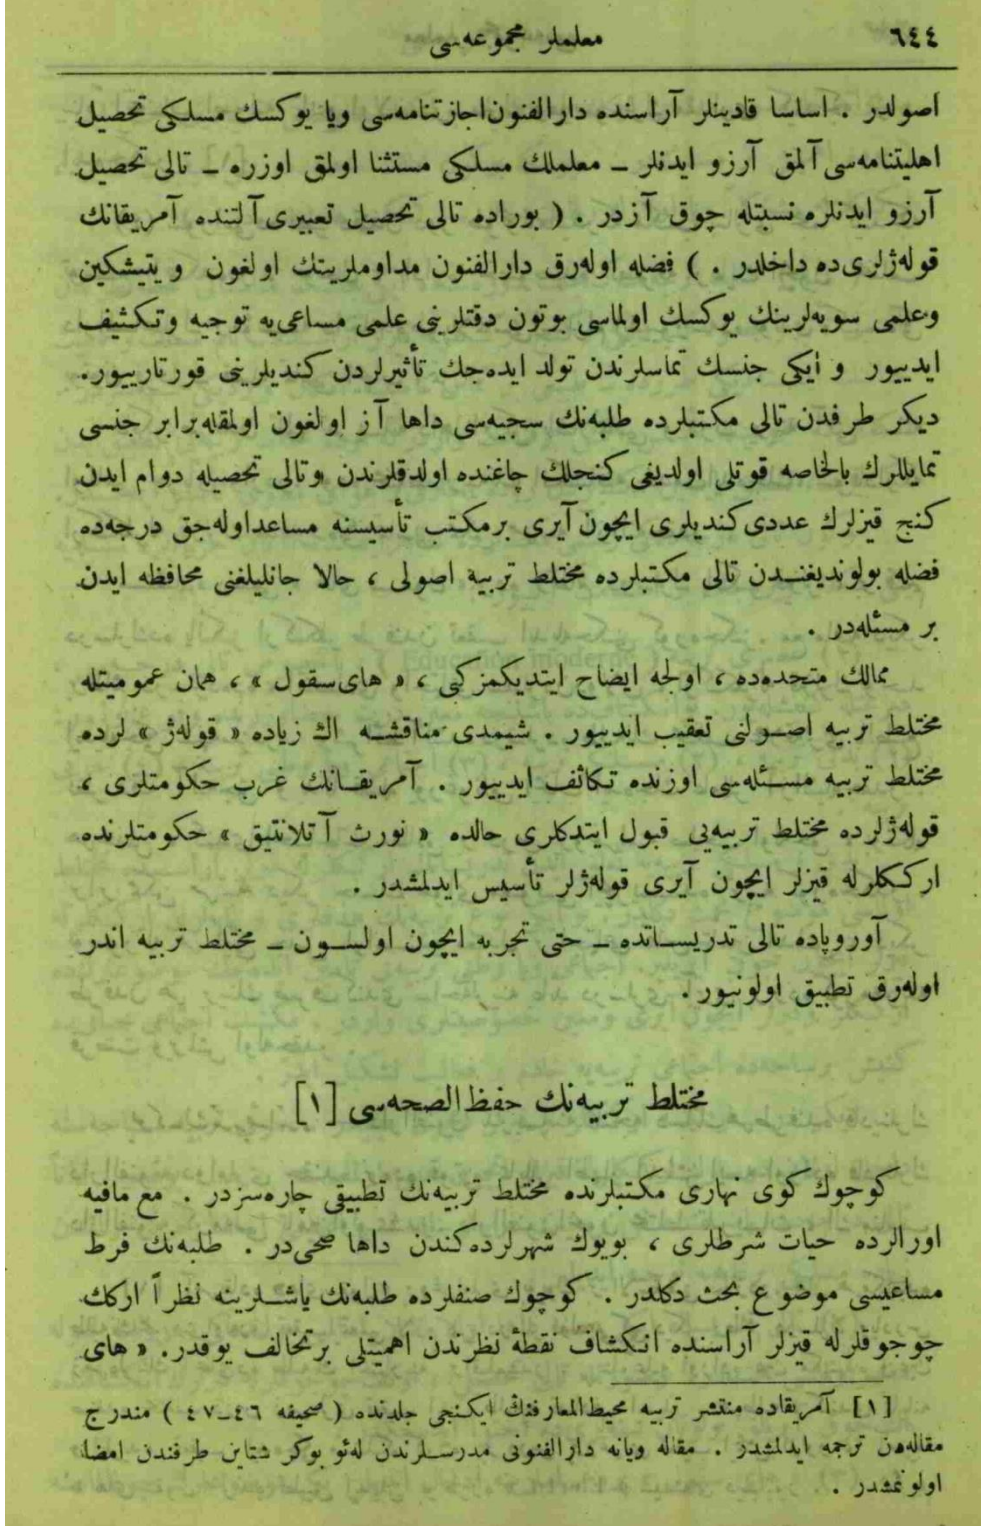 ٦٤٤
معلملر مجموعه‌سی
اصولدر . اساسا قادینلر آراسنده دارالفنون اجازتنامه‌سی ویا یوكسك مسلكی تحصیل
اهلیتنامه‌سی آلمق آرزو ایدنلر ــ معلملك مسلكی مستثنا اولمق اوزره ــ تالی تحصیل
آرزو ایدنلره نسبتله چوق آزدر . ( بوراده تالی تحصیل تعبیری آلتنده آمریقانك
قوله‌ژلری‌ده داخلدر . ) فضله اوله‌رق دارالفنون مداوملرینك اولغون و یتیشكین
وعلمی سویه‌لرینك یوكسك اولماسی بوتون دقتلرینی علمی مساعی‌یه توجیه وتكثیف
ایدییور و ایكی جنسك تماسلرندن تولد ایده‌جك تأثیرلردن كندیلرینی قورتارییور.
دیكر طرفدن تالی مكتبلرده طلبه‌نك سجیه‌سی داها آز اولغون اولمقله‌برابر جنسی
تمایللرك بالخاصه قوتلی اولدیغی كنجلك چاغنده اولدقلرندن وتالی تحصیله دوام ایدن
كنج قیزلرك عددی كندیلری ایچون آیری برمكتب تأسیسنه مساعداوله‌جق درجه‌ده
فضله بولوندیغنـدن تالی مكتبلرده مختلط تربیه اصولی ، حالا جانلیلغنی محافظه ایدن
بر مسئله‌در .
ممالك متحده‌ده ، اولجه ایضاح ایتدیكمزكبی ، « های‌سقول » ، همان عمومیتله
مختلط تربیه اصـولنی تعقیب ایدییور . شیمدی مناقشـه اك زیاده « قوله‌ژ » لرده
مختلط تربیه مسـئله‌سی اوزنده تكاثف ایدییور . آمریقـانك غرب حكومتلری ،
قوله‌ژلرده مختلط تربیه‌یی قبول ایتدكلری حالده « نورث آتلانتیق » حكومتلرنده
اركـكلرله قیزلر ایچون آیری قوله‌ژلر تأسیس ایدلمشدر .
آوروپاده تالی تدریسـاتده ــ حتی تجربه ایچون اولسـون ــ مختلط تربیه اندر
اوله‌رق تطبیق اولونیور .
مختلط تربیه‌نك حفظ‌الصحه‌سی [١]
كوچوك كوی نهاری مكتبلرنده مختلط تربیه‌نك تطبیقی چاره‌سزدر . مع مافیه
اورالرده حیات شرطلری ، بویوك شهرلرده‌كندن داها صحی‌در . طلبه‌نك فرط
مساعیسی موضوع بحث دكلدر . كوچوك صنفلرده طلبه‌نك یاشـلرینه نظراً اركك
چوجوقلرله قیزلر آراسنده انكشاف نقطهٔ نظرندن اهمیتلی برتخالف یوقدر. « های
[١] آمریقاده منتشر تربیه محیط‌المعارفنك ایكنجی جلدنده ( صحیفه ٤٦ــ٤٧ ) مندرج
مقاله‌دن ترجمه ایدلمشدر . مقاله ویانه دارالفنونی مدرسـلرندن له‌ئو بوكر شتاین طرفندن امضا
اولونمشدر .